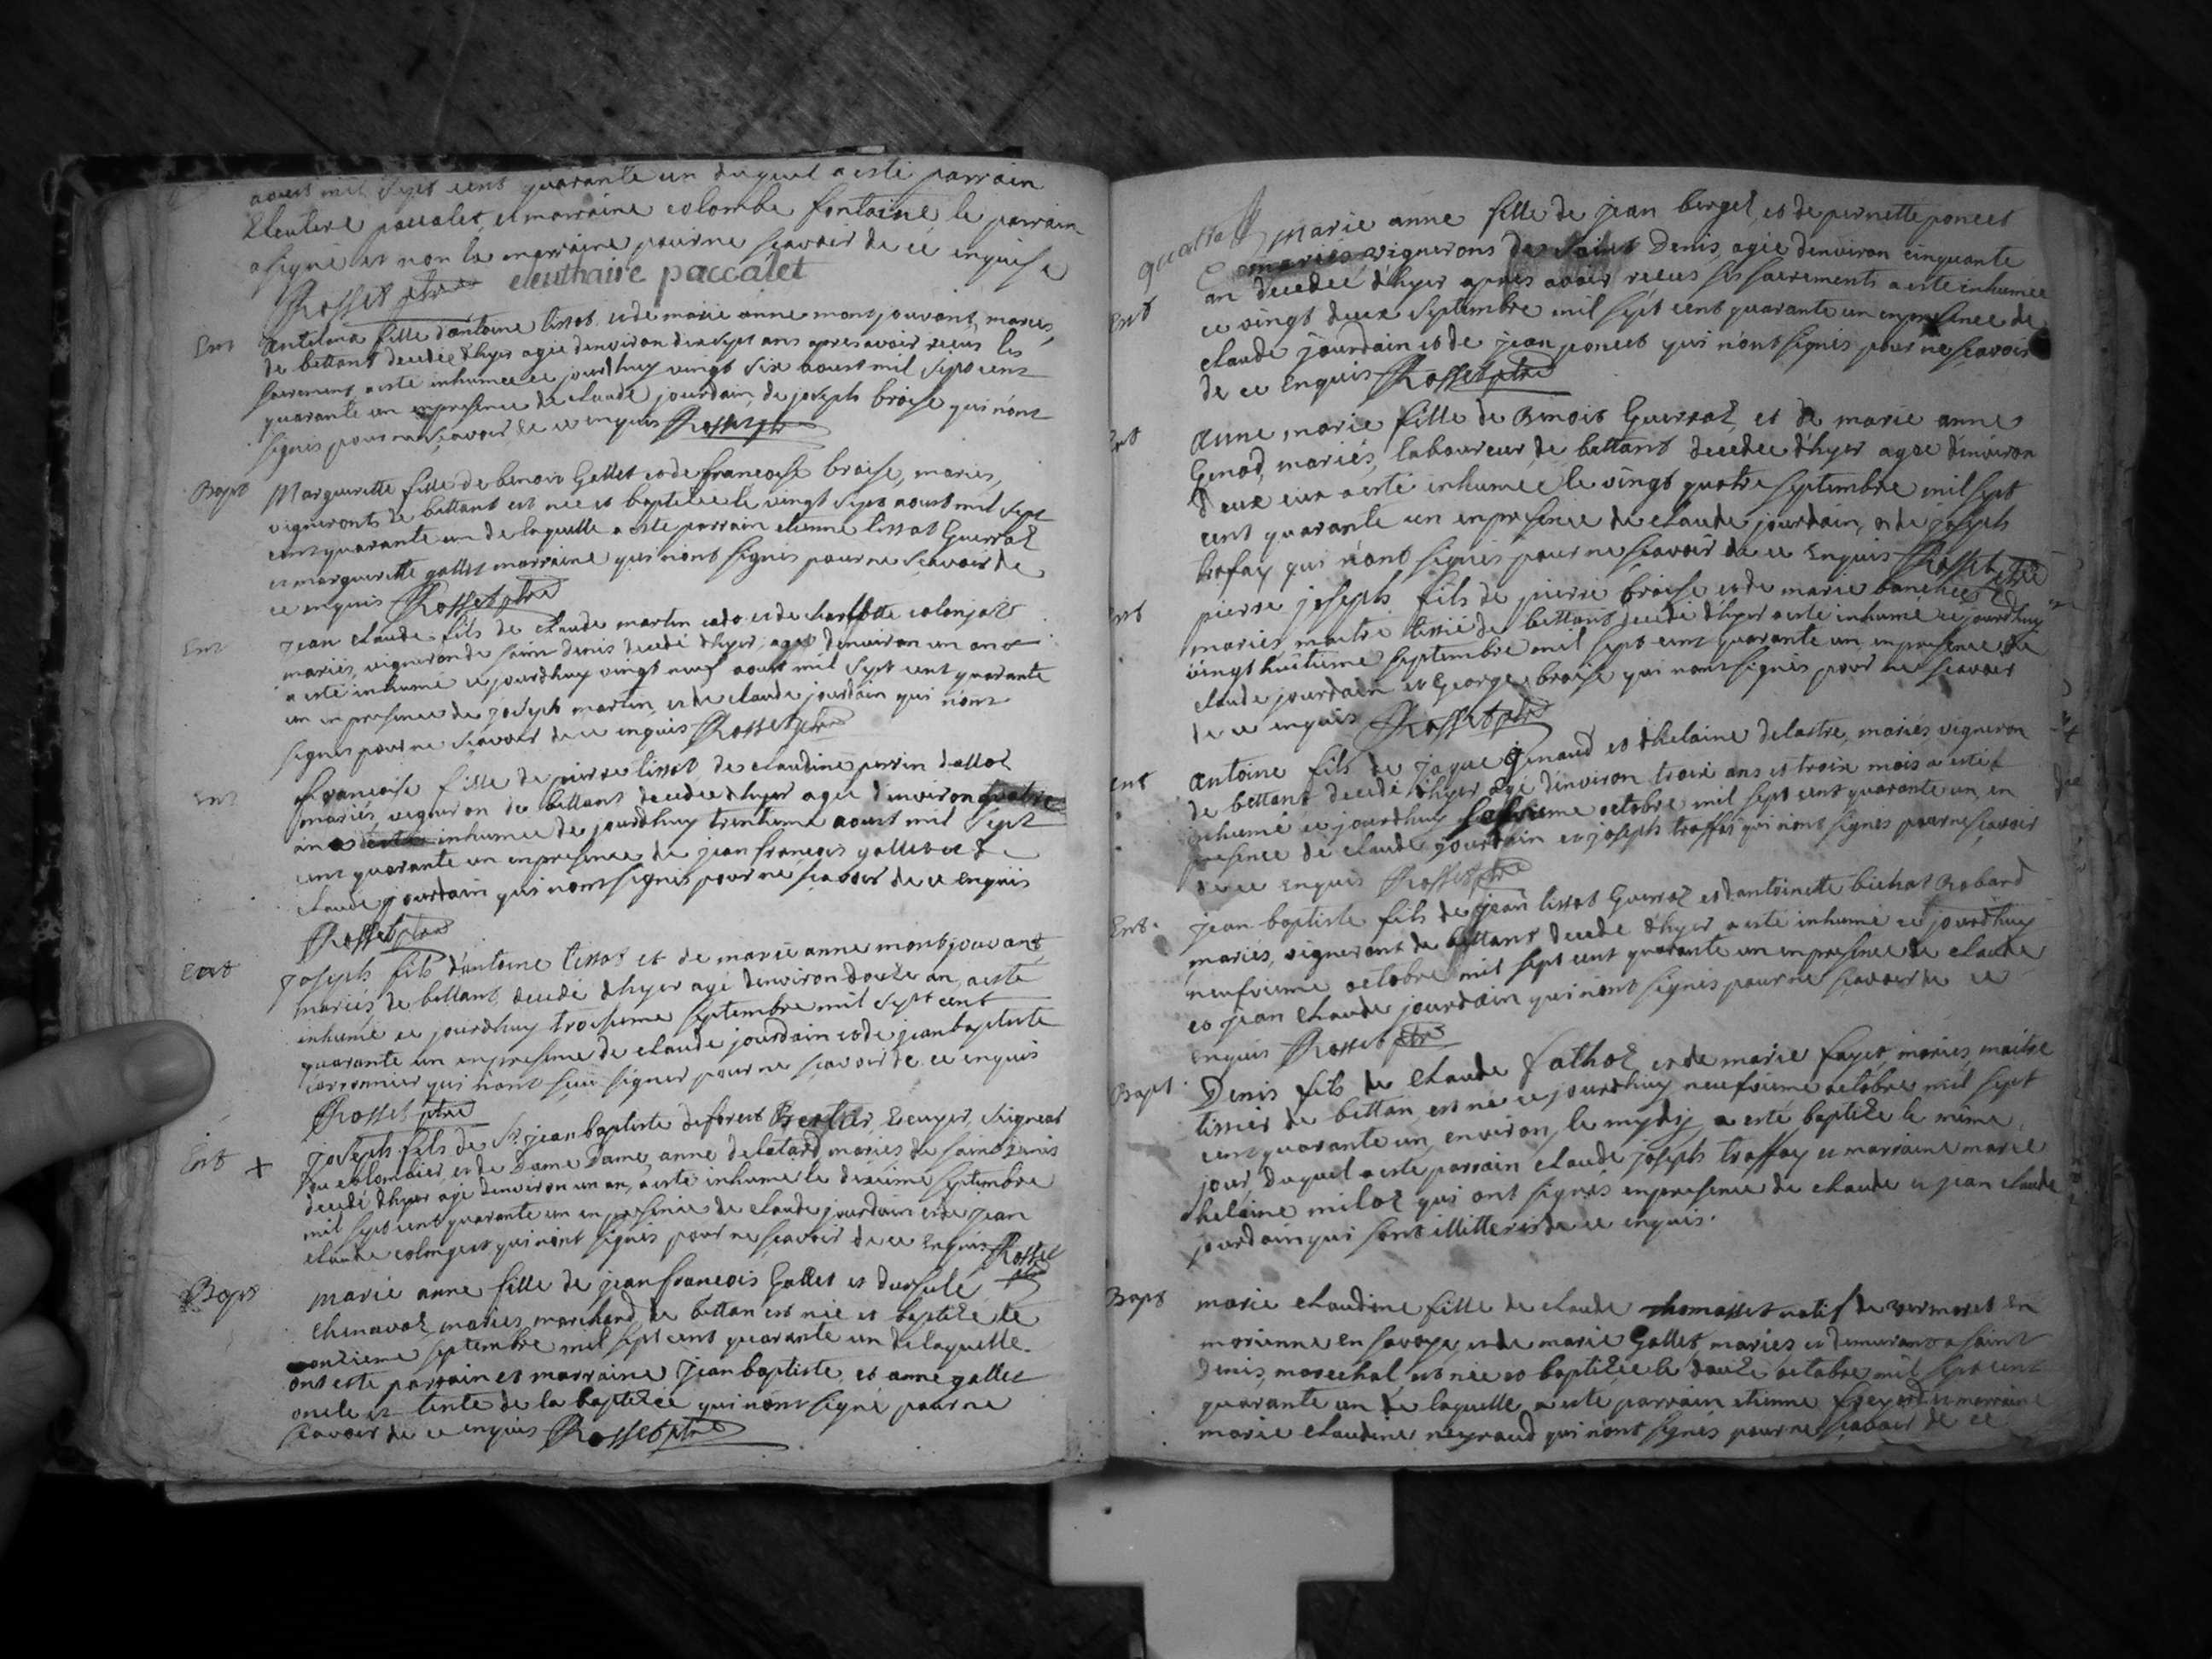 aoust mil sept cent quarante un duquel a esté parrain
Eleutere paccalet, et marraine colombe fontaine le parrain
a signé et non la marraine pour ne scavoir de ce enquise
Rosset ptre eleuthaire paccalet
Ent
fille d'antoine tissot et de marie anne montjouvant, mariés,
de bettant decedée d'hyer agée d'environ dixsept ans apres avoir receus les
sacrements a esté inhumée ce jourd'huy vingt six aoust mil sept cent
quarante un en presence de claude jourdain, de joseph broise qui n'ont
signés pour ne scavoir de ce enquis Rosset ptre
Bapt Marguerette fille de benoit Gallet et de francoise broise, mariés,
vignerons de bettant est née et baptizée le vingt sept aoust mil sept
cent quarante un de laquelle a esté parrain etienne tissot Guerraz
et marguerette gallet marraine qui n'ont signés pour ne scavoir de
ce enquis Rosset ptre
Ent Jean claude fils de claude martin et de charlotte colonjard
mariés, vigneron de saint denis decedé d'hyer, agé d'environ un an
a esté inhumé ce jourd'huy vingt neuf aoust mil sept cent quarante
un en presence de joseph martin, et de claude jourdain qui n'ont
signés pour ne scavoir de ce enquis Rosset ptre
Ent francoise fille de pierre tissot, de claudine perrin
mariés, vigneron de bettant decedée d'hyer agée d'environ quatre
ans inhumée ce jourd'huy trentieme aoust mil sept
cent quarante un en presence de jean francois gallet et de
claude jourdain qui n'ont signés pour ne scavoir de ce enquis
Rosset ptre
Ent joseph fils d'antoine tissot et de marie anne montjouvant,
mariés de bettant, decedé d'hyer agé d'environ douze an, a esté
inhumé ce jourd'huy troisieme septembre mil sept cent
quarante un en presence de claude jourdain et de jean baptiste
carronnier qui n'ont sceu signer pour ne scavoir de ce enquis
Rosset ptre
Ent + joseph fils de Sr. jean baptiste deforest Ecuyer, seigneur
du colombier, et de Dame Dame anne mariés de saint Denis
decedé d'hyer agé d'environ un an, a esté inhumé le dixieme septembre
mil sept cent quarante un en presence de claude jourdain et de jean
claude colongeat qui n'ont signés pour ne scavoir de ce enquis Rosset
ptre
Bapt marie anne fille de jean francois Gallet et d'ursule
chenavaz, mariés, marchand, de bettan est née et baptizée le
onzieme septembre mil sept cent quarante un de laquelle
ont esté parrain et marraine jean baptiste, et anne gallet
oncle et tente de la baptizée qui n'ont signé pour ne
scavoir de ce enquis Rosset ptre
marie anne fille de jean berget, et de pernette poncet
mariés vignerons de saint Denis, agée d'environ cinquante
Ent an decedée d'hyer apres avoir receus ses sacrements a esté inhumée
ce vingt deux septembre mil sept cent quarante un en presence de
claude jourdain et de jean poncet qui n'ont signés pour ne scavoir
de ce enquis Rosset ptre
Ent Anne marie fille de Benoit Guerraz et de marie anne
Genod, mariés, laboureur, de bettant decedée d'hyer agée d'environ
deux a esté inhumée le vingt quatre septembre mil sept
cent quarante un en presence de claude jourdain, et de joseph
trafay qui n'ont signés pour ne scavoir de ce enquis Rosset ptre
Ent pierre joseph fils de pierre broise et de marie
mariés, maitre tissié de bettant decedé d'hyer a esté inhumé ce jourd'huy
vingt huitieme septembre mil sept cent quarante un en presence de
claude jourdain et George broise qui n'ont signés pour ne scavoir
de ce enquis Rosset ptre
Ent antoine fils de jaque Genaud et d'helaine delastre, mariés, vigneron
de bettant decedé d'hyer agé d'environ trois ans et trois mois a esté
inhumé ce jourd'huy octobre mil sept cent quarante un, en
presence de claude jourdain et joseph traffay qui n'ont signés pour ne scavoir
de ce enquis Rosset ptre
Ent. jean baptiste fils de jean tissot Guerraz et d'antoinette bichat Robard
mariés, vignerons de bettant decedé d'hyer a esté inhumé ce jourd'huy
neufvieme octobre mil sept cent quarante un en presence de claude
et jean claude jourdain qui n'ont signés pour ne scavoir de ce
enquis Rosset ptre
Bapt. Denis fils de claude fathoz et de marie fayet, mariés, maitre
tissier de bettan, est né ce jourd'huy neufvieme octobre mil sept
cent quarante un, environ, le mydy, a esté baptizé le même
jour duquel a esté parrain claude joseph traffay et marraine marie
helaine miloz qui ont signés en presence de claude et jean claude
jourdain qui sont illitterés de ce enquis.
Bapt marie claudine fille de claude thomasset natif de vermoret en
morienne en savoye, et de marie Gallet, mariés et demeurants a saint
Denis, marechal, est née et baptizée le douze octobre mil sept cent
quarante un de laquelle a esté parrain etienne et marraine
marie claudine neyraud qui n'ont signés pour ne scavoir de ce